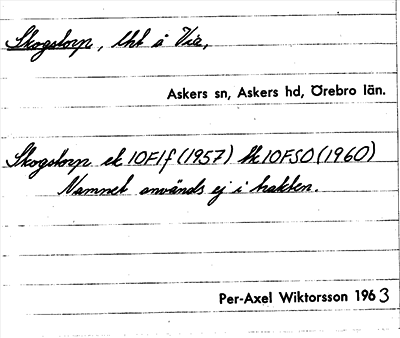 Skogstorp, lht å Via,
Askers sn, Askers hd, Örebro län.
Skogstorp ek 10F1f (1957) tk 10FSO (1960)
Namnet används ej i trakten.
Per-Axel Wiktorsson 1963